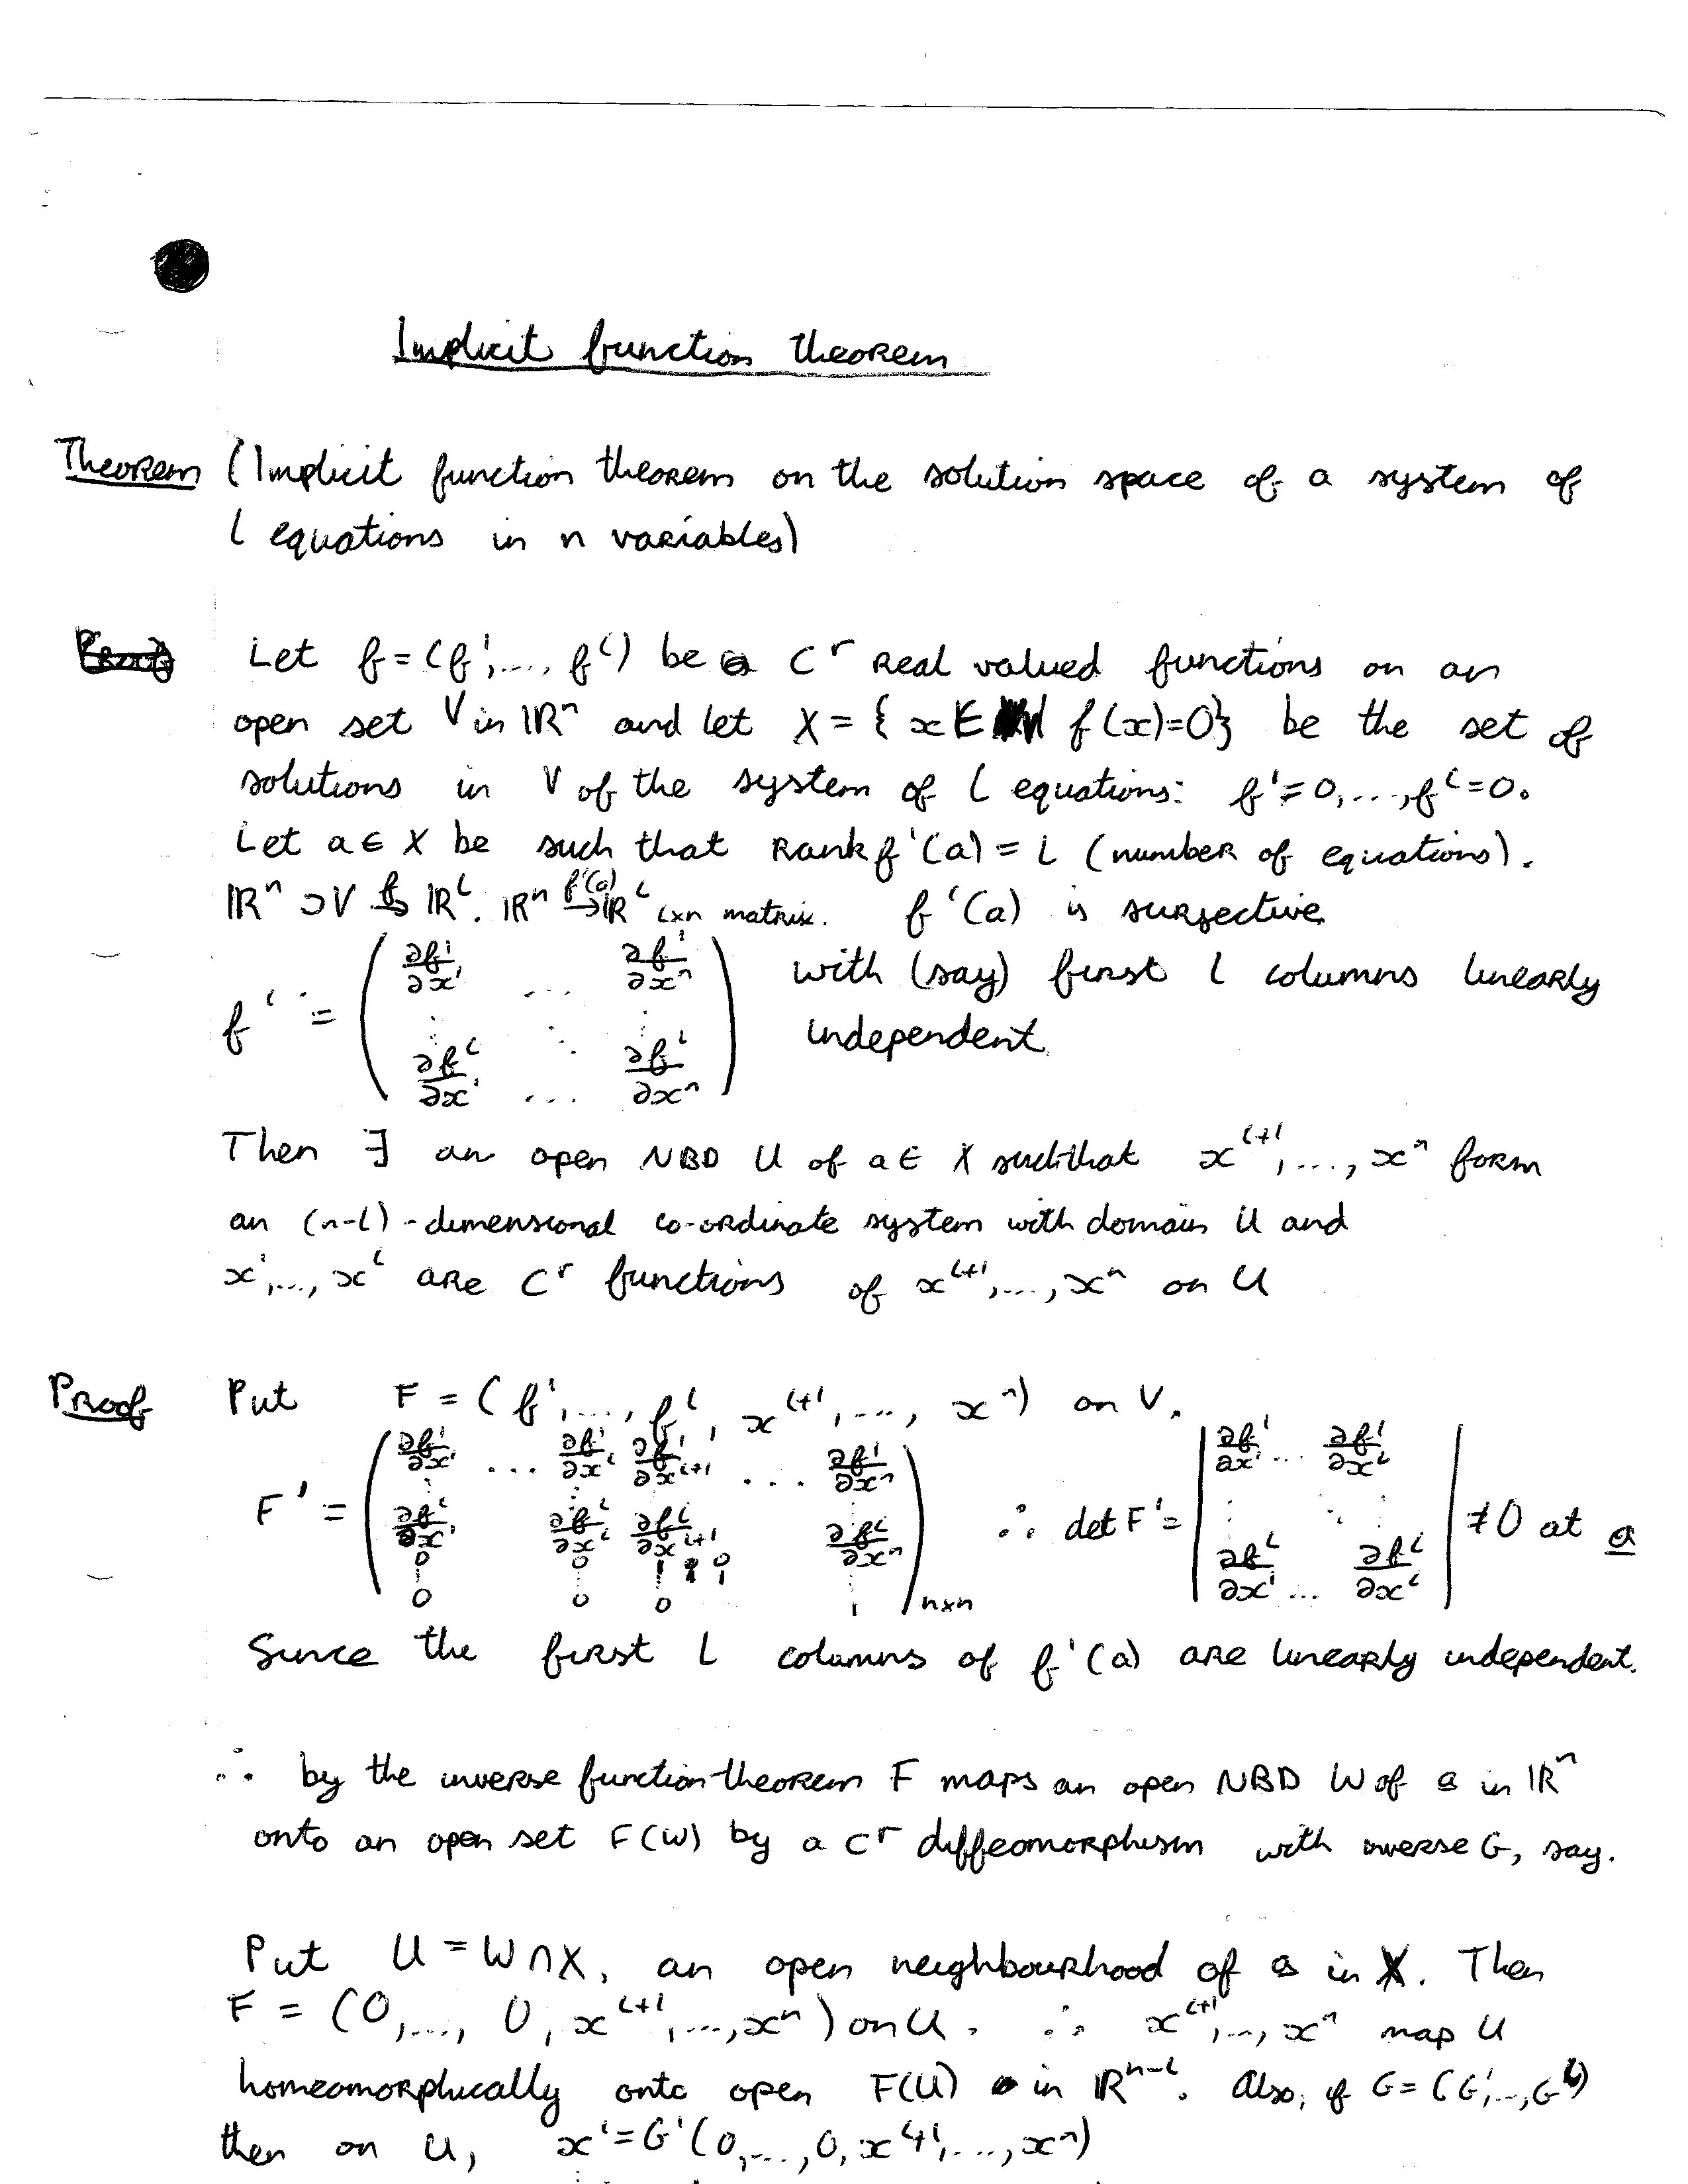 Implicit function theorem
Theorem (Implicit function theorem on the solution space of a system of
l equations in n variables)
Let f = (f¹,..., fˡ) be Cʳ real valued functions on an
open set V in ℝⁿ and let X = { x ∈ f(x)=0} be the set of
solutions in V of the system of l equations: f¹=0,...,fˡ=0.
Let a ∈ X be such that rank f'(a) = l (number of equations).
ℝⁿ ⊃ V →f ℝˡ. ℝⁿ →f'(a) ℝˡ l×n matrix. f'(a) is surjective
f' = ( ∂f¹/∂x¹ ... ∂f¹/∂xⁿ ⋮ ⋱ ⋮ ∂fˡ/∂x¹ ... ∂fˡ/∂xⁿ ) with (say) first l columns linearly
independent.
Then ∃ an open NBD U of a ∈ X such that xˡ⁺¹,..., xⁿ form
an (n-l)-dimensional co-ordinate system with domain U and
x¹,..., xˡ are Cʳ functions of xˡ⁺¹,..., xⁿ on U
Proof Put F = (f¹,..., fˡ, xˡ⁺¹,..., xⁿ) on V.
F' = ( ∂f¹/∂x¹ ... ∂f¹/∂xˡ ∂f¹/∂xˡ⁺¹ ... ∂f¹/∂xⁿ ⋮ ∂fˡ/∂x¹ ∂fˡ/∂xˡ ∂fˡ/∂xˡ⁺¹ ∂fˡ/∂xⁿ 0 0 1 0 ⋮ 0 0 0 1 ) n×n ∴ det F' = | ∂f¹/∂x¹ ... ∂f¹/∂xˡ ⋮ ⋱ ⋮ ∂fˡ/∂x¹ ... ∂fˡ/∂xˡ | ≠ 0 at a
Since the first l columns of f'(a) are linearly independent.
∴ by the inverse function theorem F maps an open NBD W of a in ℝⁿ
onto an open set F(W) by a Cʳ diffeomorphism with inverse G, say.
Put U = W ∩ X, an open neighbourhood of a in X. Then
F = (0,..., 0, xˡ⁺¹,..., xⁿ) on U. ∴ xˡ⁺¹,..., xⁿ map U
homeomorphically onto open F(U) in ℝⁿ⁻ˡ. Also, if G = (G¹,..., Gˡ)
then on U, x¹ = G¹(0,..., 0, xˡ⁺¹,..., xⁿ)